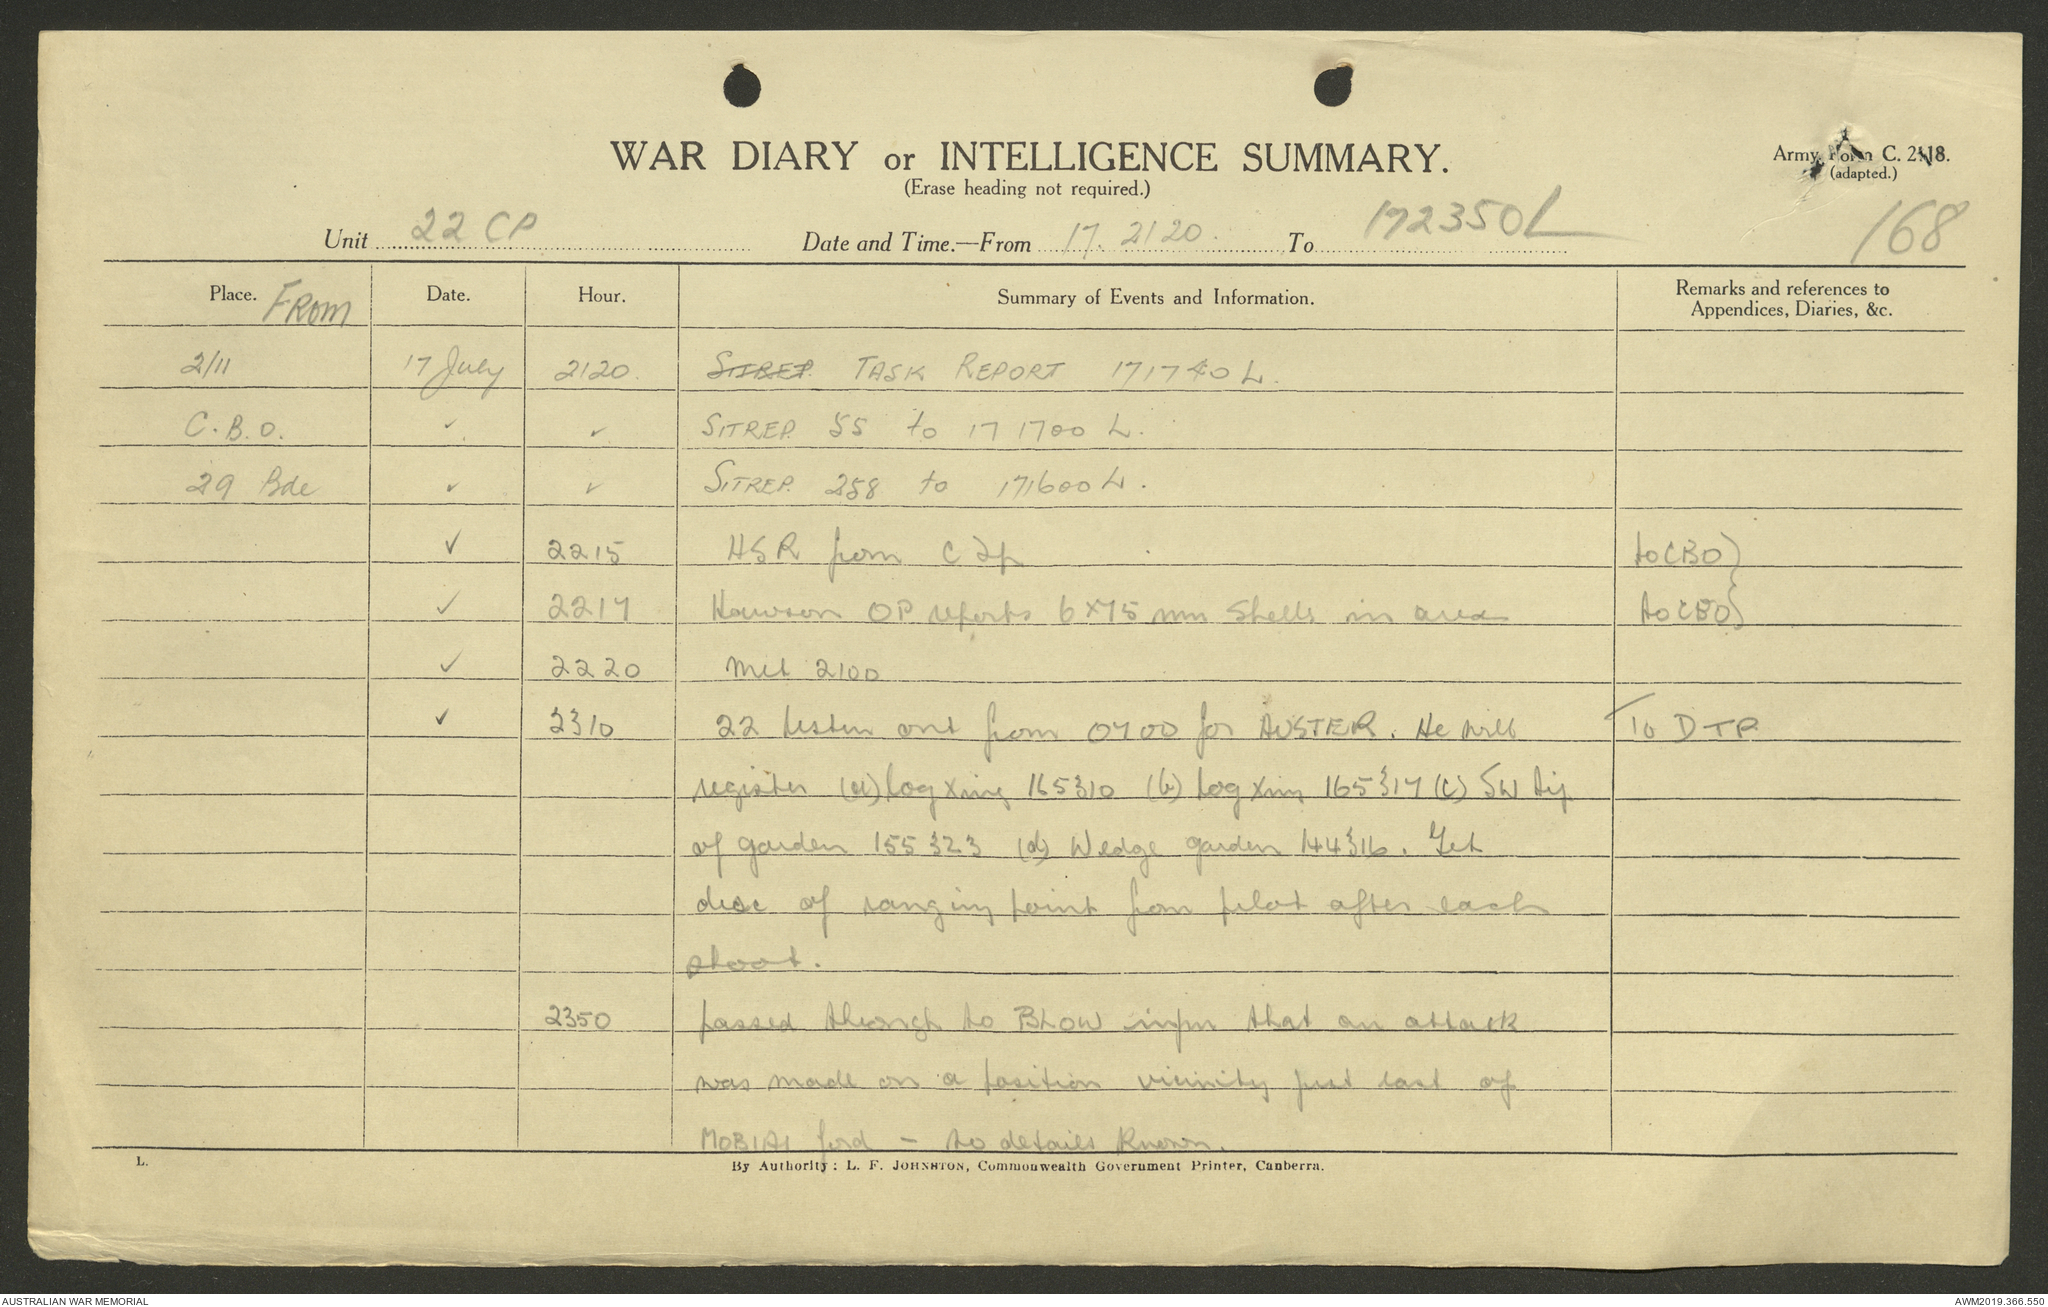 WAR DIARY or INTELLIGENCE SUMMARY.
(Erase heading not required.)
Army Form C. 2118.
(adapted.)
168
Unit 22 CP Date and Time.—From 17. 2120. To 172350L
Place. From Date. Hour. Summary of Events and Information. Remarks and references to
Appendices, Diaries, &c.
2/11 17 July 2120. SITREP. TASK REPORT 171740 L.
C.B.O. ✓ ✓ SITREP. 55 to 171700 L.
29 Bde ✓ ✓ SITREP. 258 to 171600 L.
✓ 2215 HSR from C Tp to CBO }
✓ 2217 Howson OP reports 6x75 mm shells in area to CBO }
✓ 2220 Met 2100
✓ 2310 22 listen out from 0700 for AUSTER. He will To DTP
register (a) Log Xing 165310 (b) Log Xing 165317 (c) SW tip
of garden 155323 (d) Wedge garden 144316. Get
desc of ranging point from pilot after each
shoot.
2350 passed through to BLOW infm that an attack
was made on a position vicinity just east of
MOBIAI ford - no details known.
L. By Authority: L. F. JOHNSTON, Commonwealth Government Printer, Canberra.
AUSTRALIAN WAR MEMORIAL AWM2019.366.550